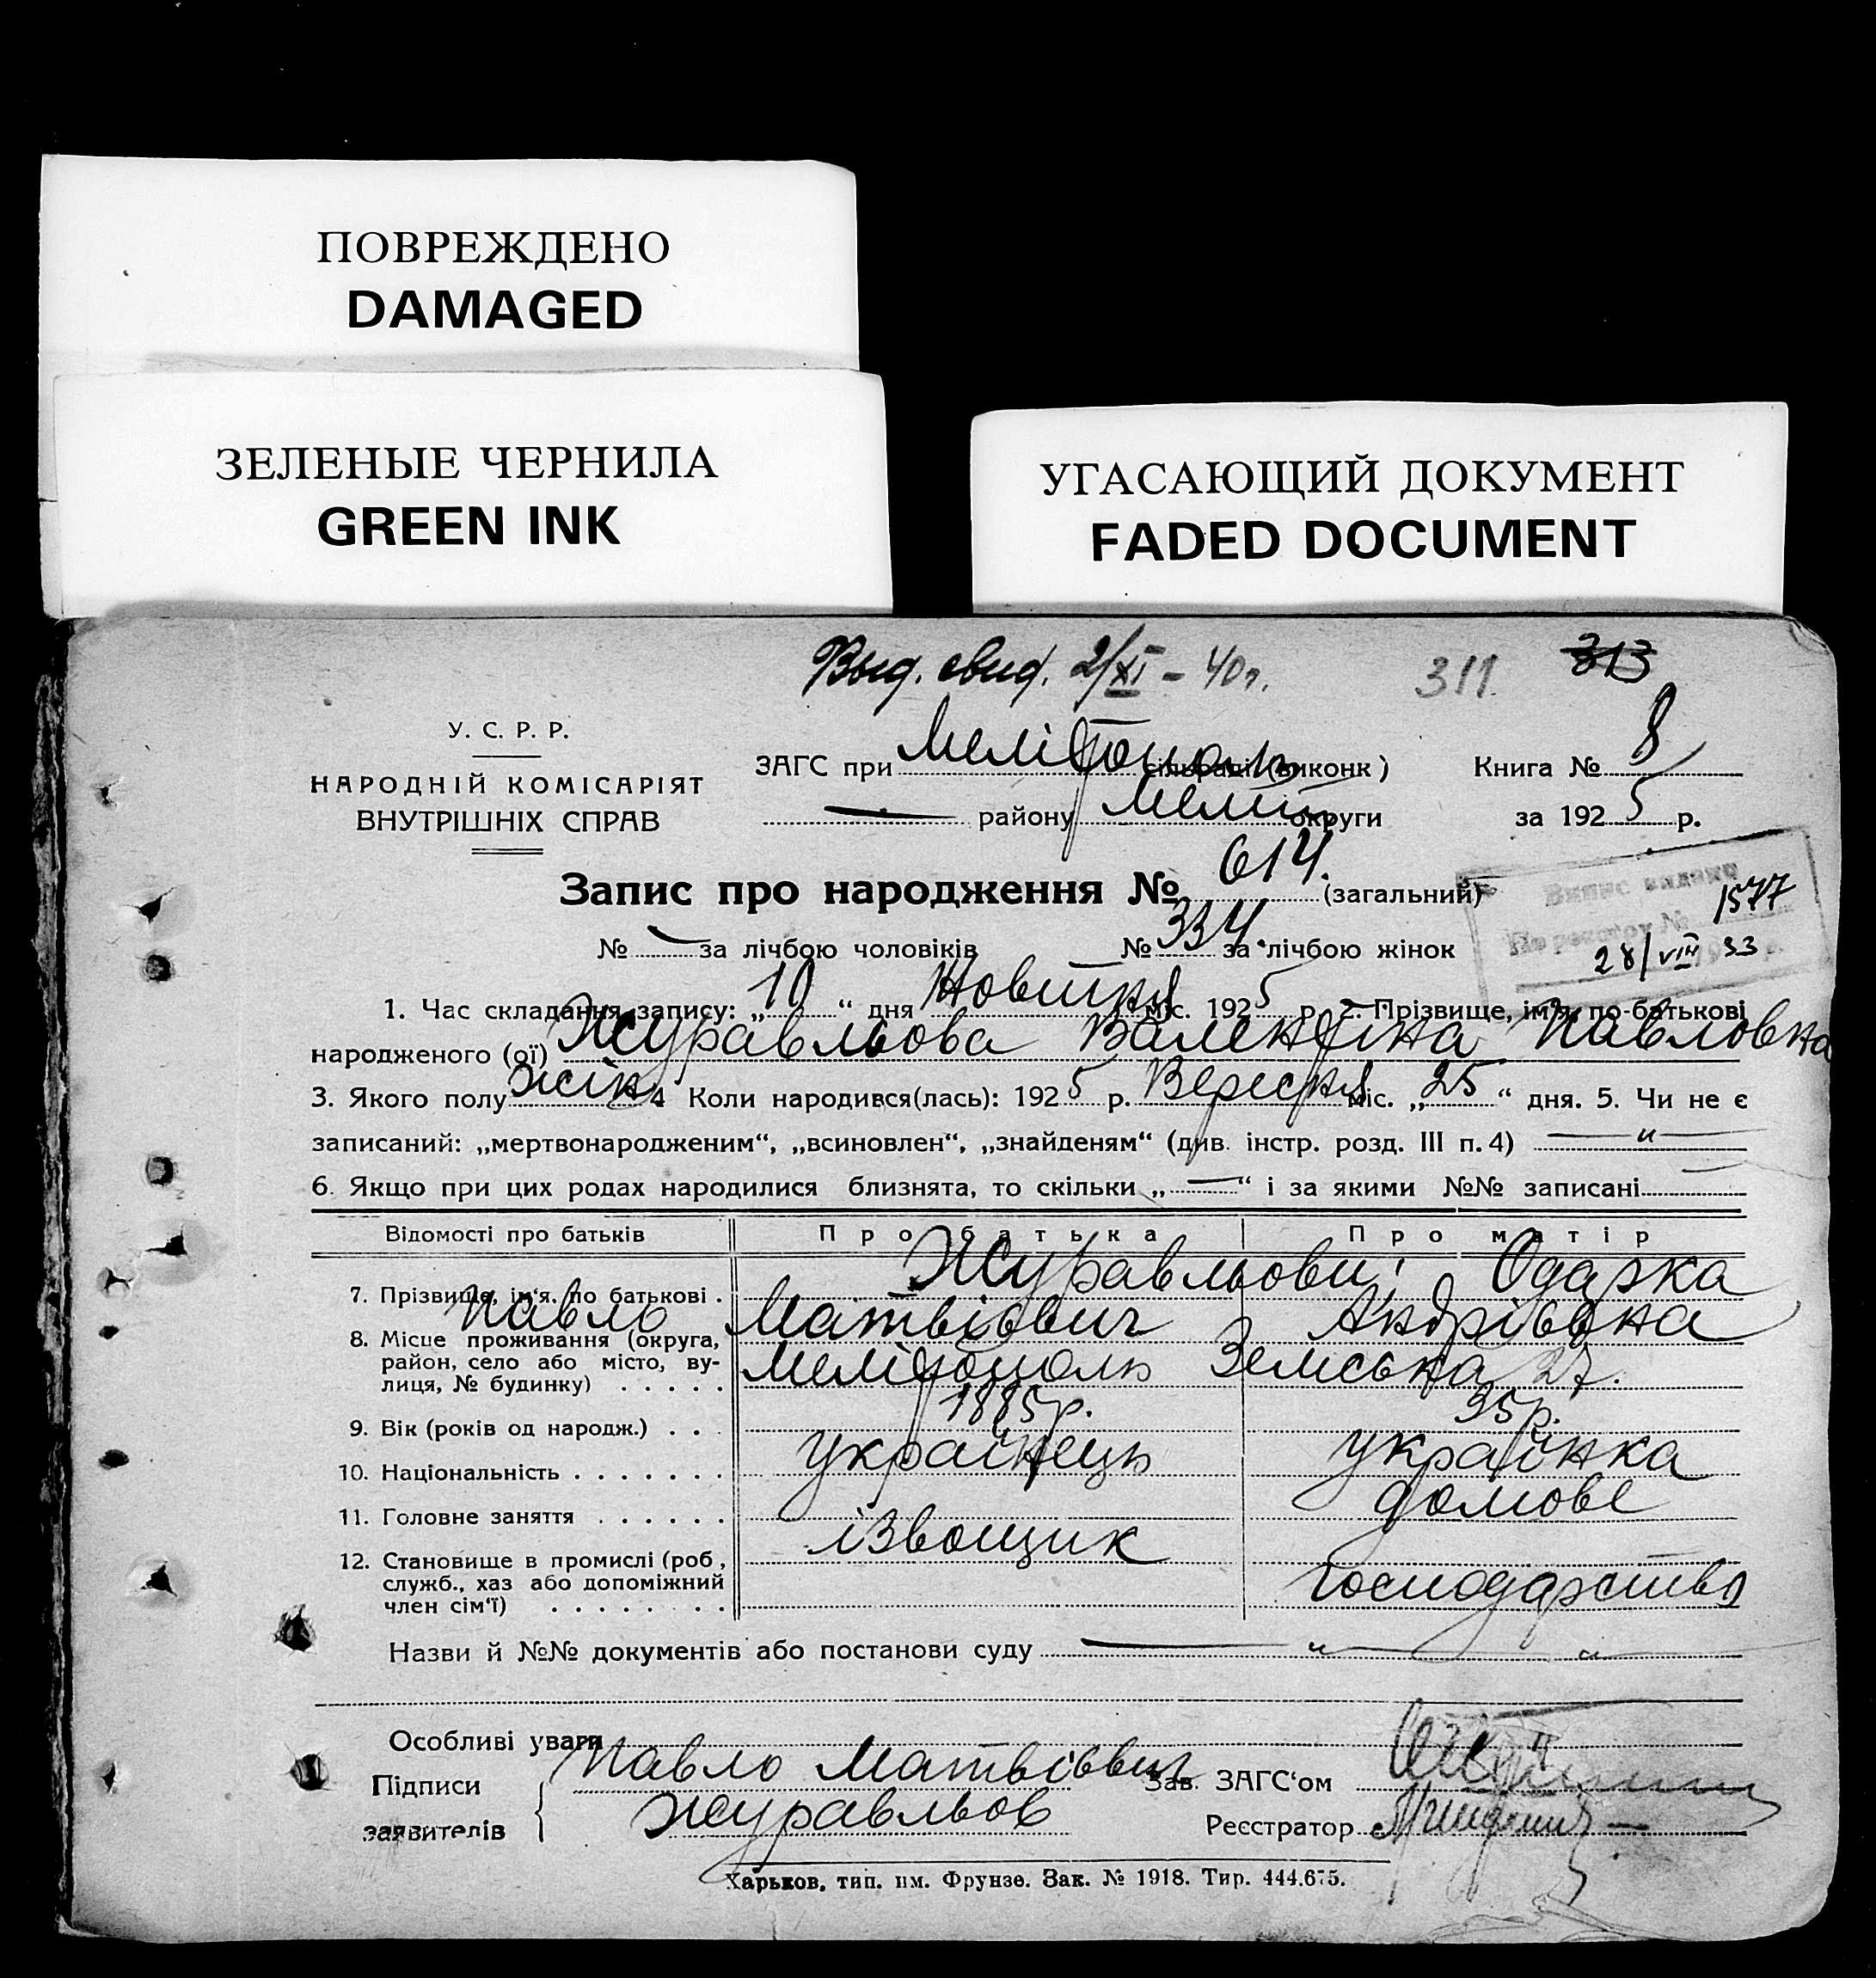 ПОВРЕЖДЕНО
DAMAGED
ЗЕЛЕНЫЕ ЧЕРНИЛА
GREEN INK
УГАСАЮЩИЙ ДОКУМЕНТ
FADED DOCUMENT
Выд. свид. 2/XI – 40 г. 311. 313
У. С. Р. Р.
НАРОДНІЙ КОМІСАРІЯТ
ВНУТРІШНІХ СПРАВ
ЗАГС при Мелітополь сільраді (виконк) Книга № 8
району Меліт. округи за 1925 р.
Запис про народження № 614. (загальний)
№ за лічбою чоловіків № 334. за лічбою жінок
Випис видано
По реєстру № 1577
28/VIII 33
1. Час складання запису: „10“ дня Жовтня міс. 1925 р. 2. Прізвище, ім'я, по-батькові
народженого (ої) Журавльова Валентіна Павловна
3. Якого полу жін. 4. Коли народився(лась): 1925 р. Вересня міс. „25“ дня. 5. Чи не є
записаний: „мертвонародженим“, „всиновлен“, „знайденям“ (див. інстр. розд. III п. 4) — „ —
6. Якщо при цих родах народилися близнята, то скільки „—“ і за якими №№ записані —
Відомості про батьків Про батька Про матір
7. Прізвище, ім'я, по батькові . Журавльови: Одарка
Павло Матвієвич Андріівна
8. Місце проживання (округа, район, село або місто, ву-
лиця, № будинку) . . . . . Мелітополь Земська 27.
9. Вік (років од народж.) . . . 1885 р. 35 р.
10. Національність . . . . . . . українець українка
11. Головне заняття . . . . . . ізвощик домове
12. Становище в промислі (роб,
служб., хаз або допоміжний
член сім'ї) . . . . . . . . господарство
Назви й №№ документів або постанови суду — „ — „ —
Особливі уваги
Підписи
заявителів
Павло Матвієвич
Журавльов
Зав. ЗАГС'ом
Реєстратор
Харьков, тип. им. Фрунзе. Зак. № 1918. Тир. 444.675.